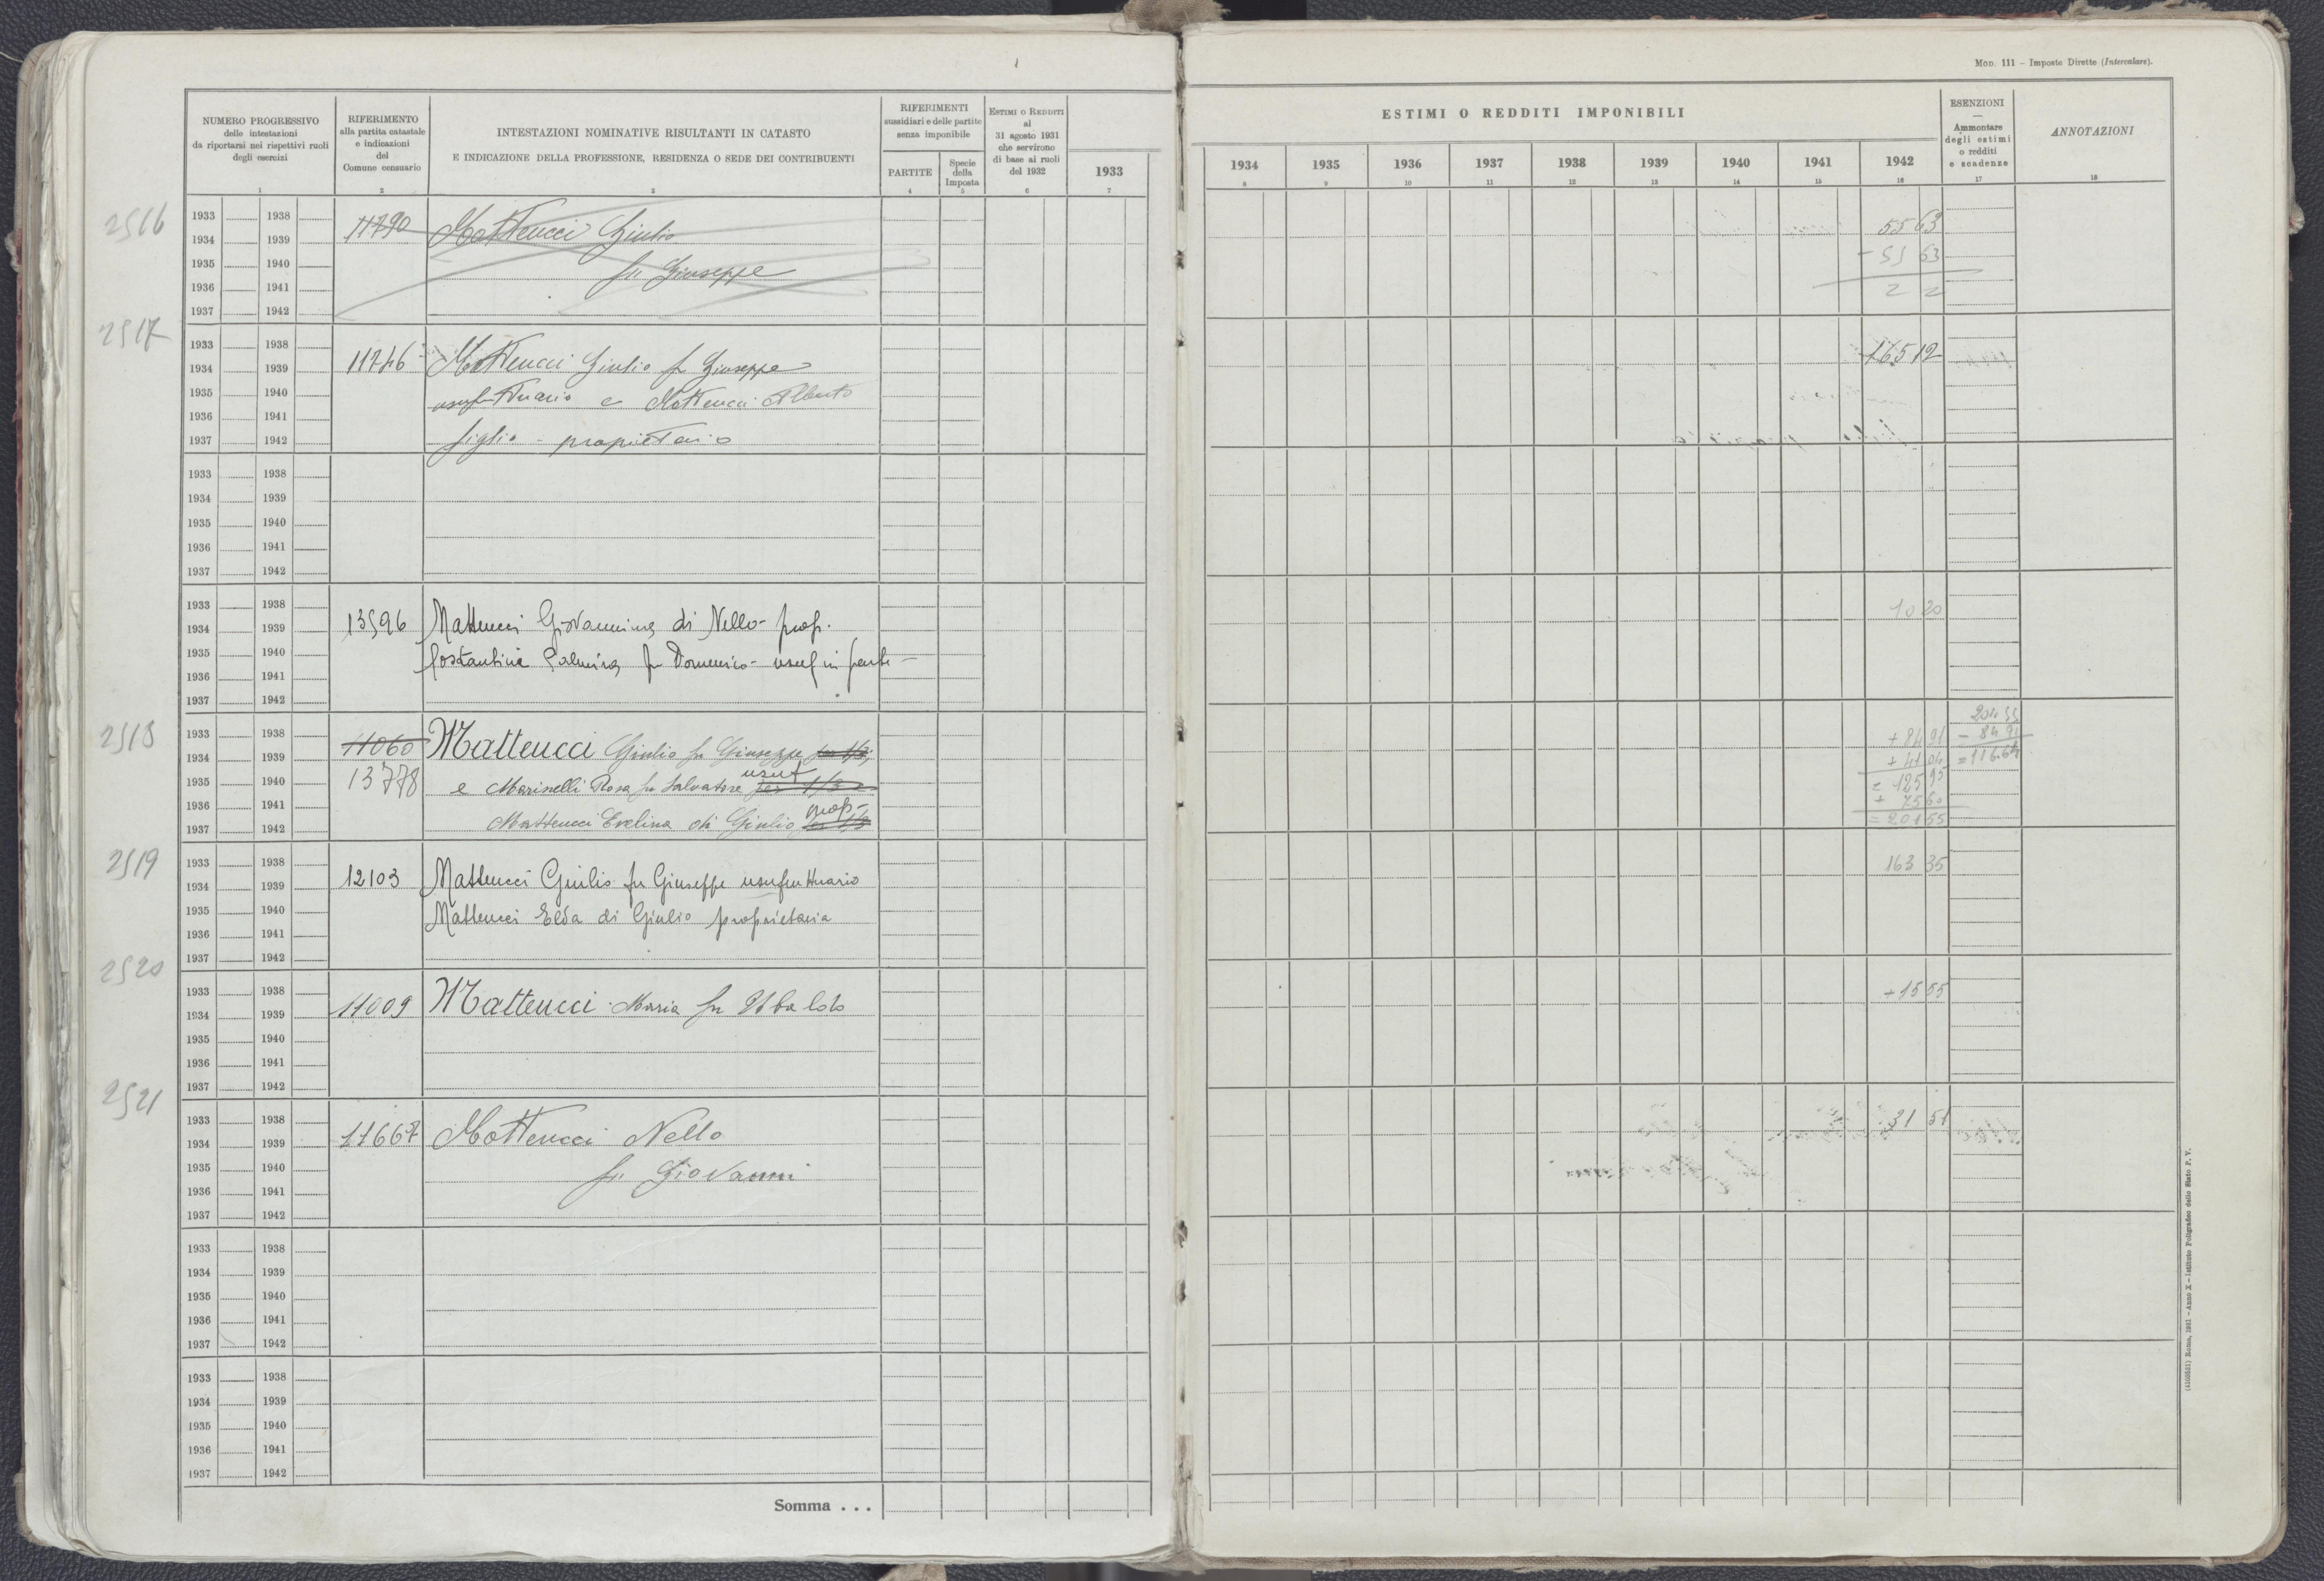 Mod. 111 – Imposte Dirette (Intercalare).
NUMERO PROGRESSIVO
delle intestazioni
da riportarsi nei rispettivi ruoli
degli esercizi
1
RIFERIMENTO
alla partita catastale
e indicazioni
del
Comune censuario
2
INTESTAZIONI NOMINATIVE RISULTANTI IN CATASTO
E INDICAZIONE DELLA PROFESSIONE, RESIDENZA O SEDE DEI CONTRIBUENTI
3
RIFERIMENTI
sussidiari e delle partite
senza imponibile
PARTITE
4
Specie
della
Imposta
5
Estimi o Redditi
al
31 agosto 1931
che servirono
di base ai ruoli
del 1932
6
1933
7
ESTIMI O REDDITI IMPONIBILI
1934 1935 1936 1937 1938 1939 1940 1941 1942
8 9 10 11 12 13 14 15 16
ESENZIONI
—
Ammontare
degli estimi
o redditi
e scadenze
17
ANNOTAZIONI
18
2516
1933 1938
1934 1939
1935 1940
1936 1941
1937 1942
11790 Matteucci Giulio
fu Giuseppe
55 63
- 55 63
2517
1933 1938
1934 1939
1935 1940
1936 1941
1937 1942
11746 Matteucci Giulio fu Giuseppe
usufruttuario e Matteucci Alberto
figlio - proprietario
165 12
1933 1938
1934 1939
1935 1940
1936 1941
1937 1942
1933 1938
1934 1939
1935 1940
1936 1941
1937 1942
13596 Matteucci Giovannina di Nello - prop.
Costantini Palmira fu Domenico - usuf in parte -
10 20
2518
1933 1938
1934 1939
1935 1940
1936 1941
1937 1942
11060 Matteucci Giulio fu Giuseppe per 1/3;
13778 e Marinelli Rosa fu Salvatore per 1/3 e usuf
Matteucci Evelina di Giulio per 1/3 prop-
+ 84 91
+ 41 04
= 125 95
+ 75 60
= 201 55
- 84 91
= 116.64
2519
1933 1938
1934 1939
1935 1940
1936 1941
1937 1942
12103 Matteucci Giulio fu Giuseppe usufruttuario
Matteucci Elda di Giulio proprietaria
163 35
2520
1933 1938
1934 1939
1935 1940
1936 1941
1937 1942
11009 Matteucci Maria fu Ubaldo
+ 15 55
2521
1933 1938
1934 1939
1935 1940
1936 1941
1937 1942
11667 Matteucci Nello
fu Giovanni
31 51
1933 1938
1934 1939
1935 1940
1936 1941
1937 1942
1933 1938
1934 1939
1935 1940
1936 1941
1937 1942
Somma . . .